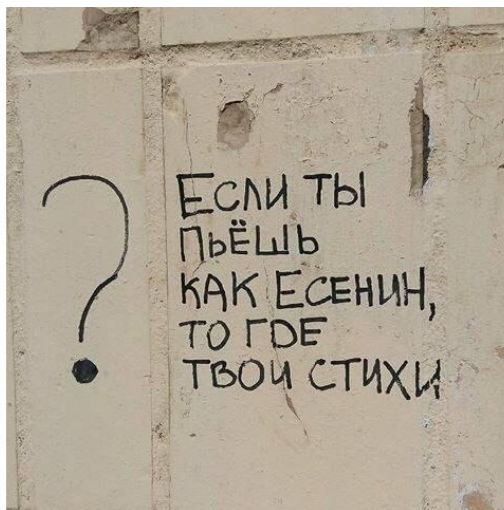 ?
Если ты
пьёшь
как Есенин,
то где
твои стихи